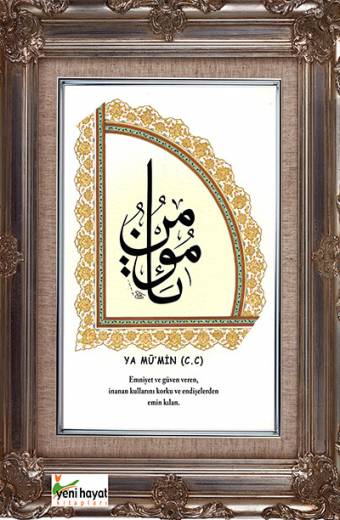 يا مؤمن
YA MÜ'MİN (C.C)
Emniyet ve güven veren,
inanan kullarını korku ve endişelerden
emin kılan.
yeni hayat
kitapları